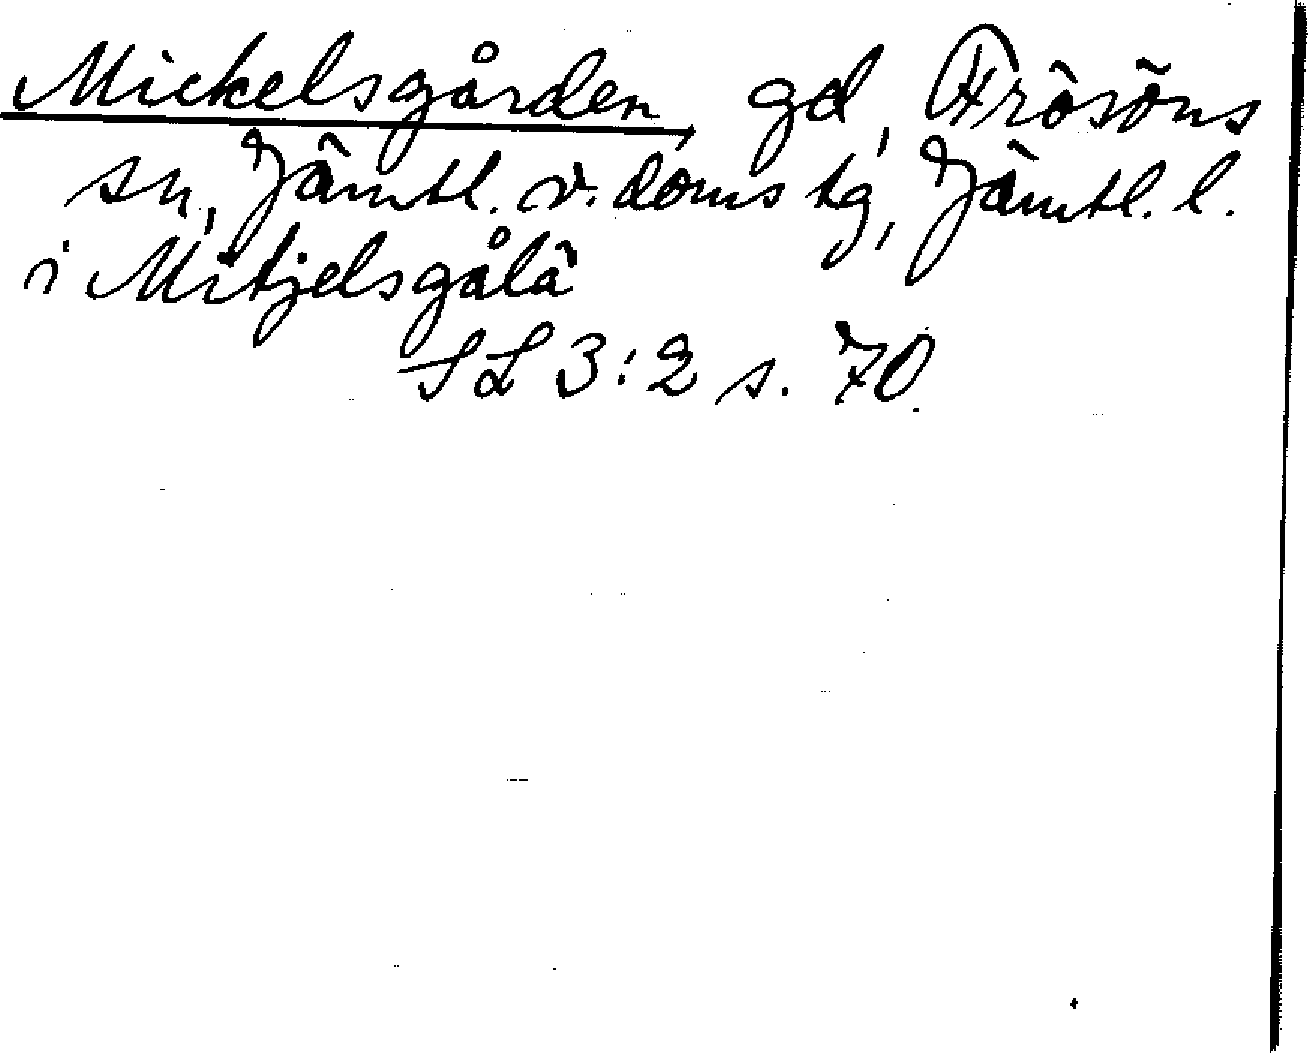 Mickelsgården gd, Frösöns
sn, Jämtl. v. doms tg, Jämtl. l.
i Mitjelsgålä
SL 3:2 s. 70.